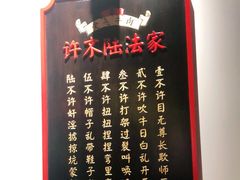 家法陆不许
壹不许目无尊长欺师
贰不许吹牛日白乱开
叁不许打架过裂叫唤
肆不许扭扭捏捏弯里
伍不许帽子乱带鞋子
陆不许奸淫掳掠坑蒙